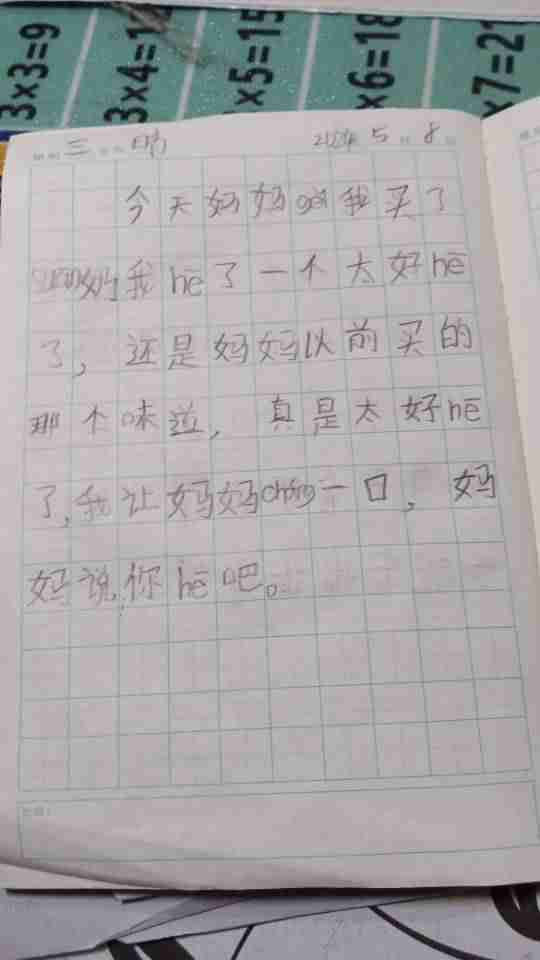 3×3=9
3×4=12
×5=15
×6=18
×7=21
三 晴 5 8
今天妈妈gěi我买了
奶我hē了一个太好hē
了，还是妈妈以前买的
那个味道，真是太好hē
了，我让妈妈cháng一口，妈
妈说你hē吧。